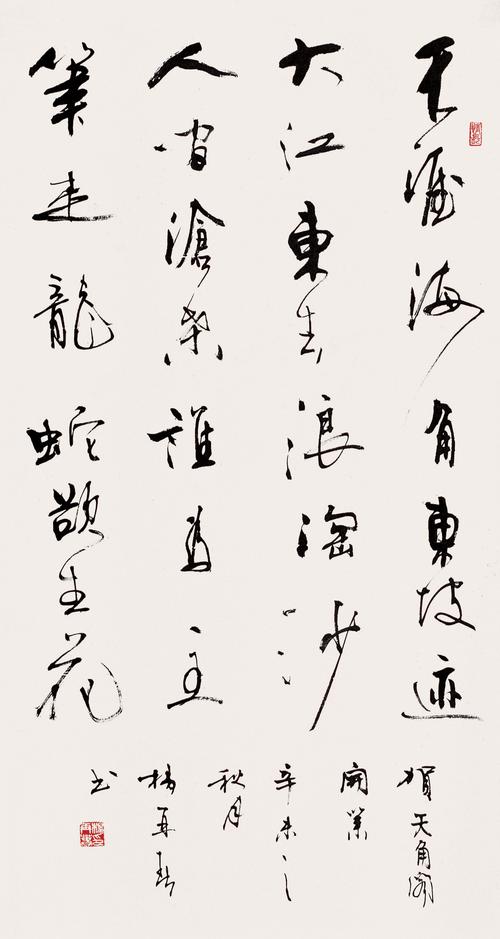 天涯海角東坡迹
大江東去浪淘沙
人間滄桑誰為主
筆走龍蛇欲生花
賀天角閣
開業
辛未之
秋月
楊再春
书